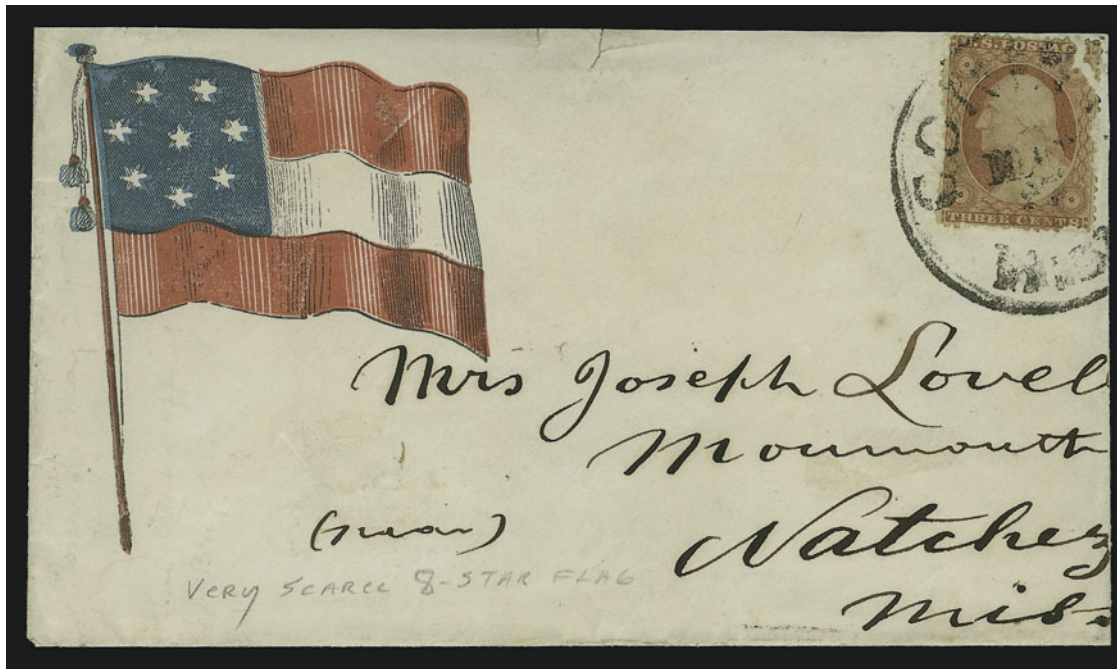 U.S. POSTAGE
THREE CENTS
Mrs Joseph Lovel
Monmouth
(near)
Natchez
Mis.
VERY SCARCE 8-STAR FLAG